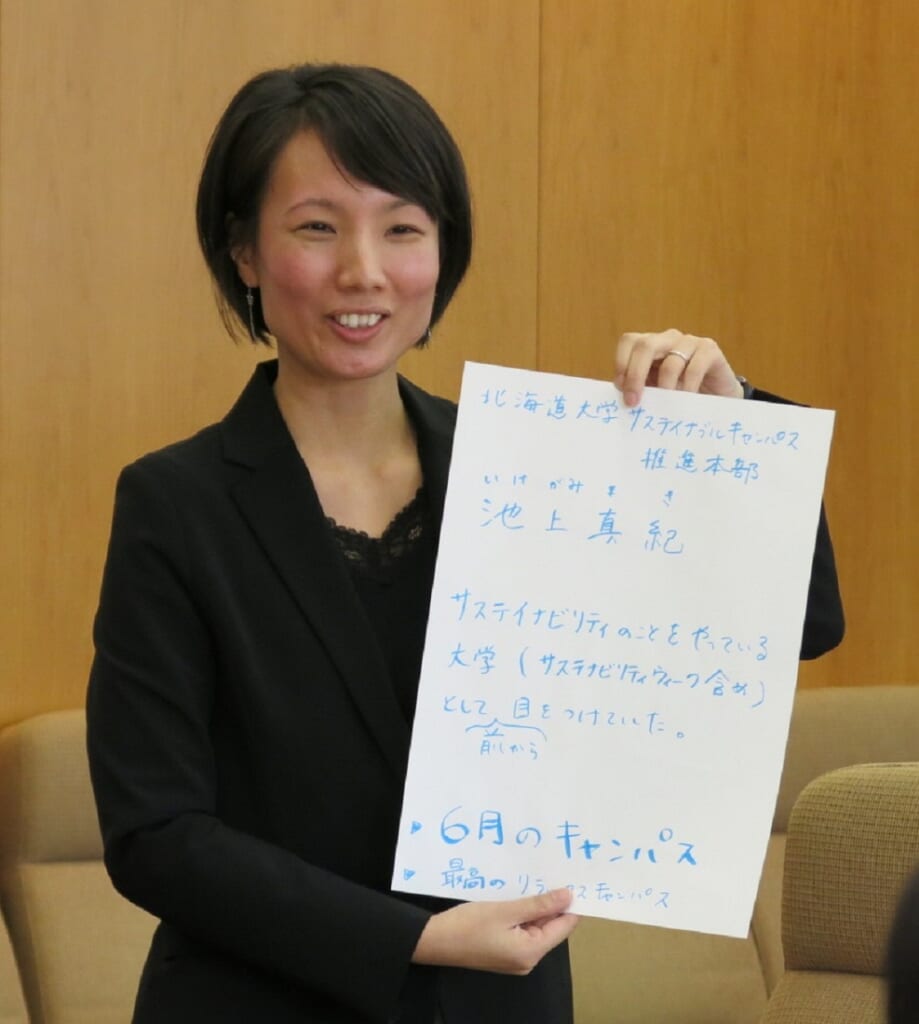 北海道大学サステイナブルキャンパス
推進本部
いけがみ まき
池上真紀
サステイナビリティのことをやっている
大学(サステナビリティウィーク含め)
として目をつけていた。
前から
6月のキャンパス
最高の リラックスキャンパス